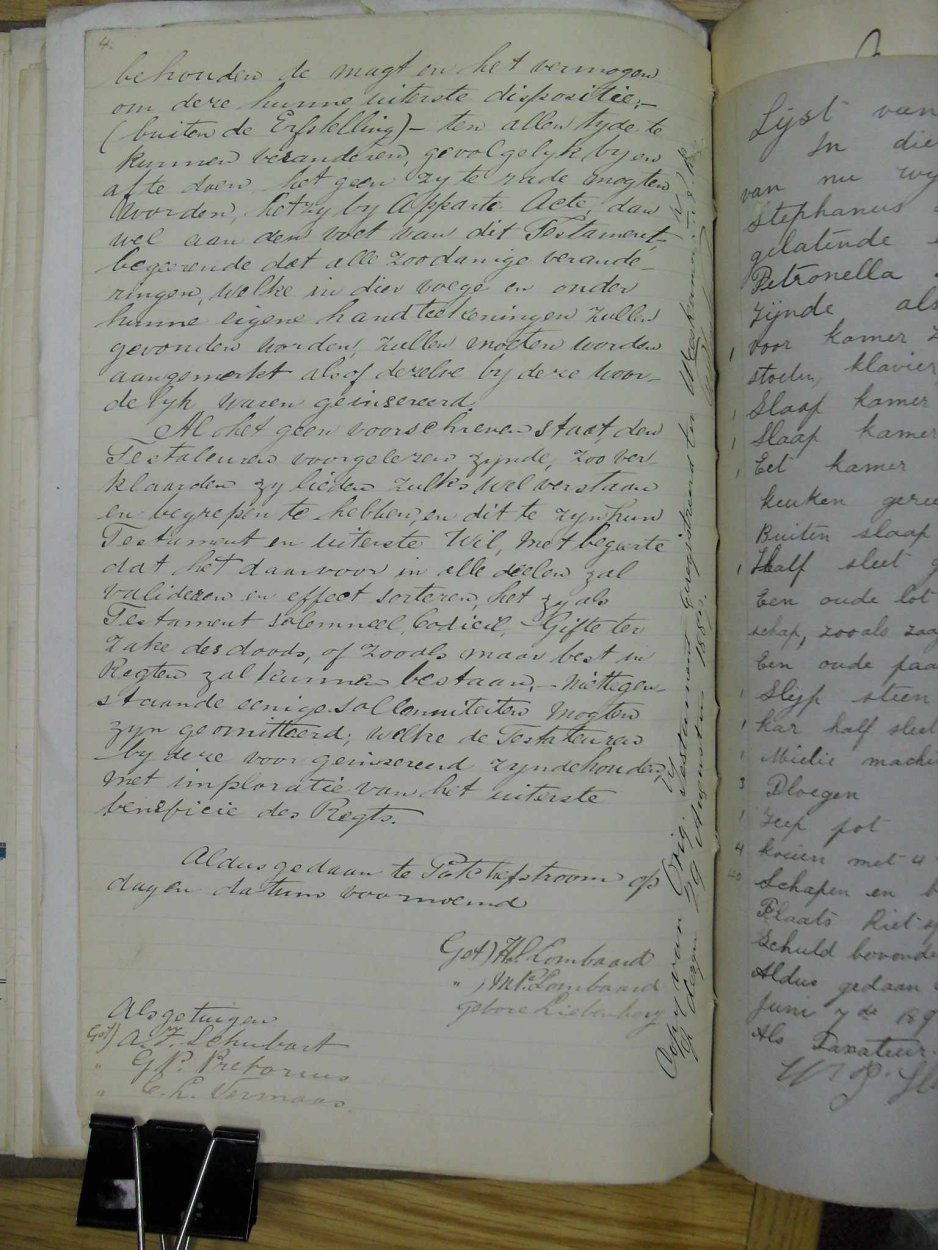 4.
behouden de magt en het vermogen
om deze hunne uiterste dispositie,—
(buiten de Erfstelling)— ten allen tyde te
kunnen veranderen, gevolgelyk by en
af te doen, het geen zy te rade mogten
worden, het zy by Apparte Acte, dan
wel aan den voet van dit Testament,—
begeerende dat alle zoodanige verande-
ringen, welke in dier voege en onder
hunne eigene handteekeningen zullen
gevonden worden, zullen moeten worden
aangemerkt alsof dezelve by deze woor-
delyk waren geinsereerd.
Al het geen voorschreven staat, den
Testateuren voorgelezen zynde, zoo ver-
klaarden zy lieden zulks wel verstaan
en begrepen te hebben, en dit te zyn hun
Testament en uiterste Wil, met begeerte
dat het daarvoor in alle deelen zal
valideren en effect sorteren, het zy als
Testament solemneel, Codicil, Gifte ter
zake des doods, of zooals maar best in
Regten zal kunnen bestaan,— niettegen-
staande eenige sollemniteiten mogten
zyn geomitteerd; welke de Testateuren
by deze voor geinsereerd zyndehouden
met imploratie van het uiterste
beneficie des Regts.
Aldus gedaan te Potchefstroom op
dagen datum voornoemd
Get) H. Lombaard
" ) M. Lombaard
gebore Liebenberg
Als getuigen
Get) A. F. Schubart
" G. P. Pretorius
" C. L. Vermaas.
Copy van Orig. Testament Geregistreerd ten Weeskamer
dezen 29 Augustus
Lijst van
In die
van nu wy
Stephanus
gelatende
Petronella
zijnde als
1 voor kamer
stoelen, klavier
1 Slaap kamer
1 Slaap kamer
1 Eet kamer
keuken geree
Buiten slaap
1 Half sleet
Een oude lot
schap, zooals zaag
Een oude paa
1 Slyp steen
1 kar half sleet
1 Mielie machi
3 Ploegen
1 Zeep pot
4 koeien met 4
40 Schapen en b
Plaats Riet
Schuld bovende
Aldus gedaan
Juni 7de 189
Als Taxateur